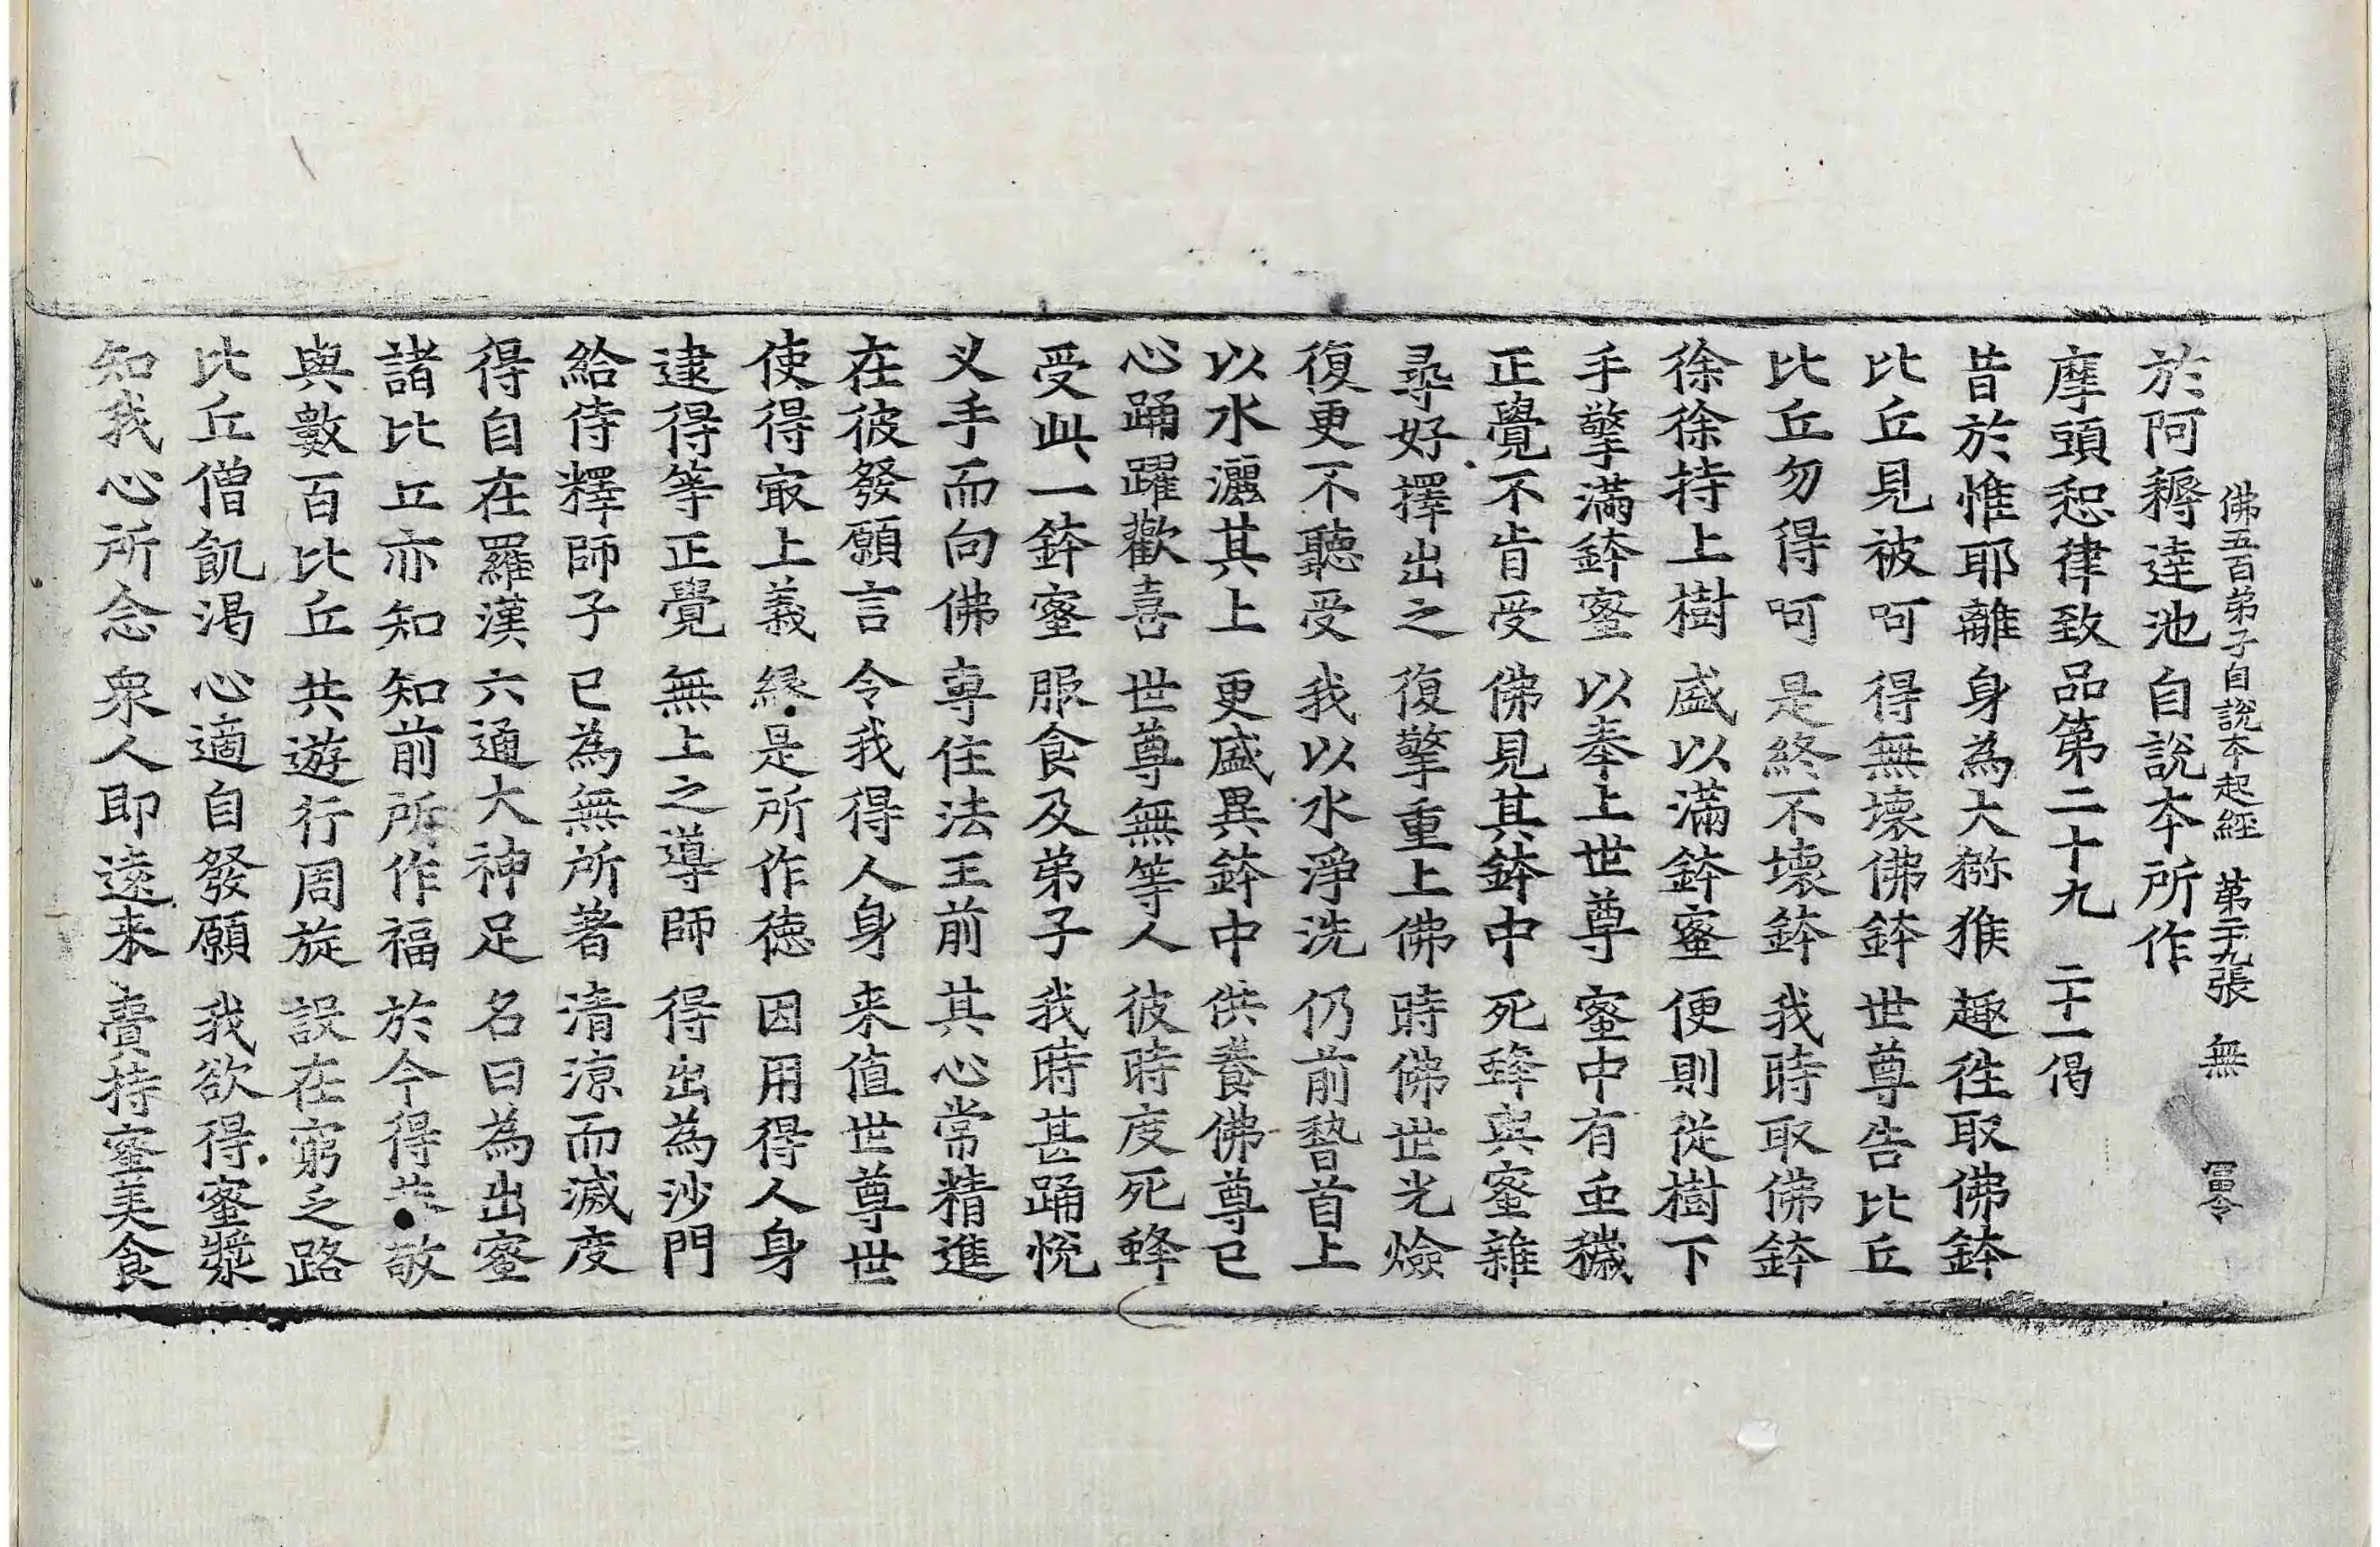 佛五百弟子自說本起經 第二十九張 無 冨令
於阿耨達池 自說本所作
摩頭恕律致品第二十九 二十一偈
昔於惟耶離 身為大猕猴 趣徃取佛鉢
比丘見被呵 得無壞佛鉢 世尊告比丘
比丘勿得呵 是終不壞鉢 我時取佛鉢
徐徐持上樹 盛以滿鉢蜜 便則從樹下
手擎滿鉢蜜 以奉上世尊 蜜中有虫穢
正覺不肯受 佛見其鉢中 死蜂與蜜雜
尋好擇出之 復擎重上佛 時佛世光燄
復更不聽受 我以水淨洗 仍前稽首上
以水灑其上 更盛異鉢中 供養佛尊已
心踊躍歡喜 世尊無等人 彼時度死蜂
受此一鉢蜜 服食及弟子 我時甚踊悅
叉手而向佛 專住法王前 其心常精進
在彼發願言 令我得人身 来值世尊世
使得㝡上義 縁是所作徳 因用得人身
逮得等正覺 無上之導師 得出為沙門
給侍釋師子 已為無所著 清涼而滅度
得自在羅漢 六通大神足 名曰為出蜜
諸比丘亦知 知前所作福 於今得恭敬
與數百比丘 共遊行周旋 設在窮乏路
比丘僧飢渴 心適自發願 我欲得蜜漿
知我心所念 衆人即遠来 賷持蜜美食